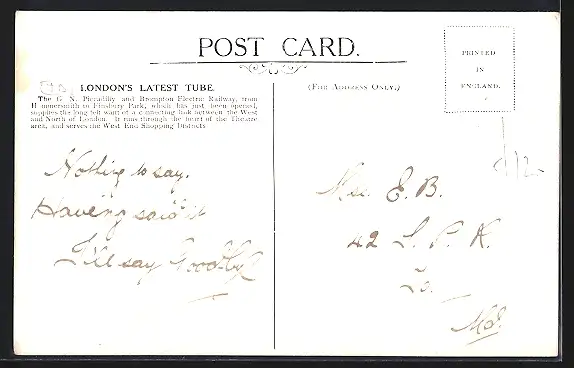 POST CARD.
LONDON'S LATEST TUBE.
The G. N. Piccadilly and Brompton Electric Railway, from
Hammersmith to Finsbury Park, which has just been opened,
supplies the long felt want of a connecting link between the West
and North of London. It runs through the heart of the Theatre
area, and serves the West End Shopping Districts
(FOR ADDRESS ONLY.)
PRINTED
IN
ENGLAND.
Nothing to say.
Having said it
I'll say Goodbye
E. B.
42 L. P. R.